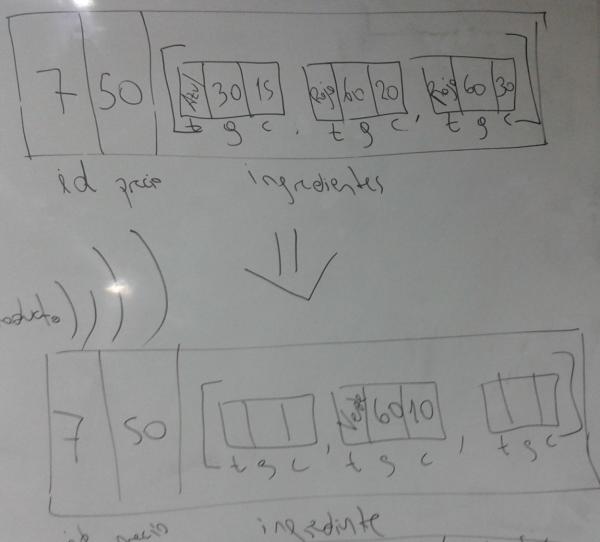 7 50 [ Azul 30 15 , Rojo 60 20 , Rojo 60 30 ]
t g c t g c t g c
id precio ingredientes
oducto) ) ) )
7 50 [ , Verde 60 10 , ]
t g c t g c t g c
precio ingrediente